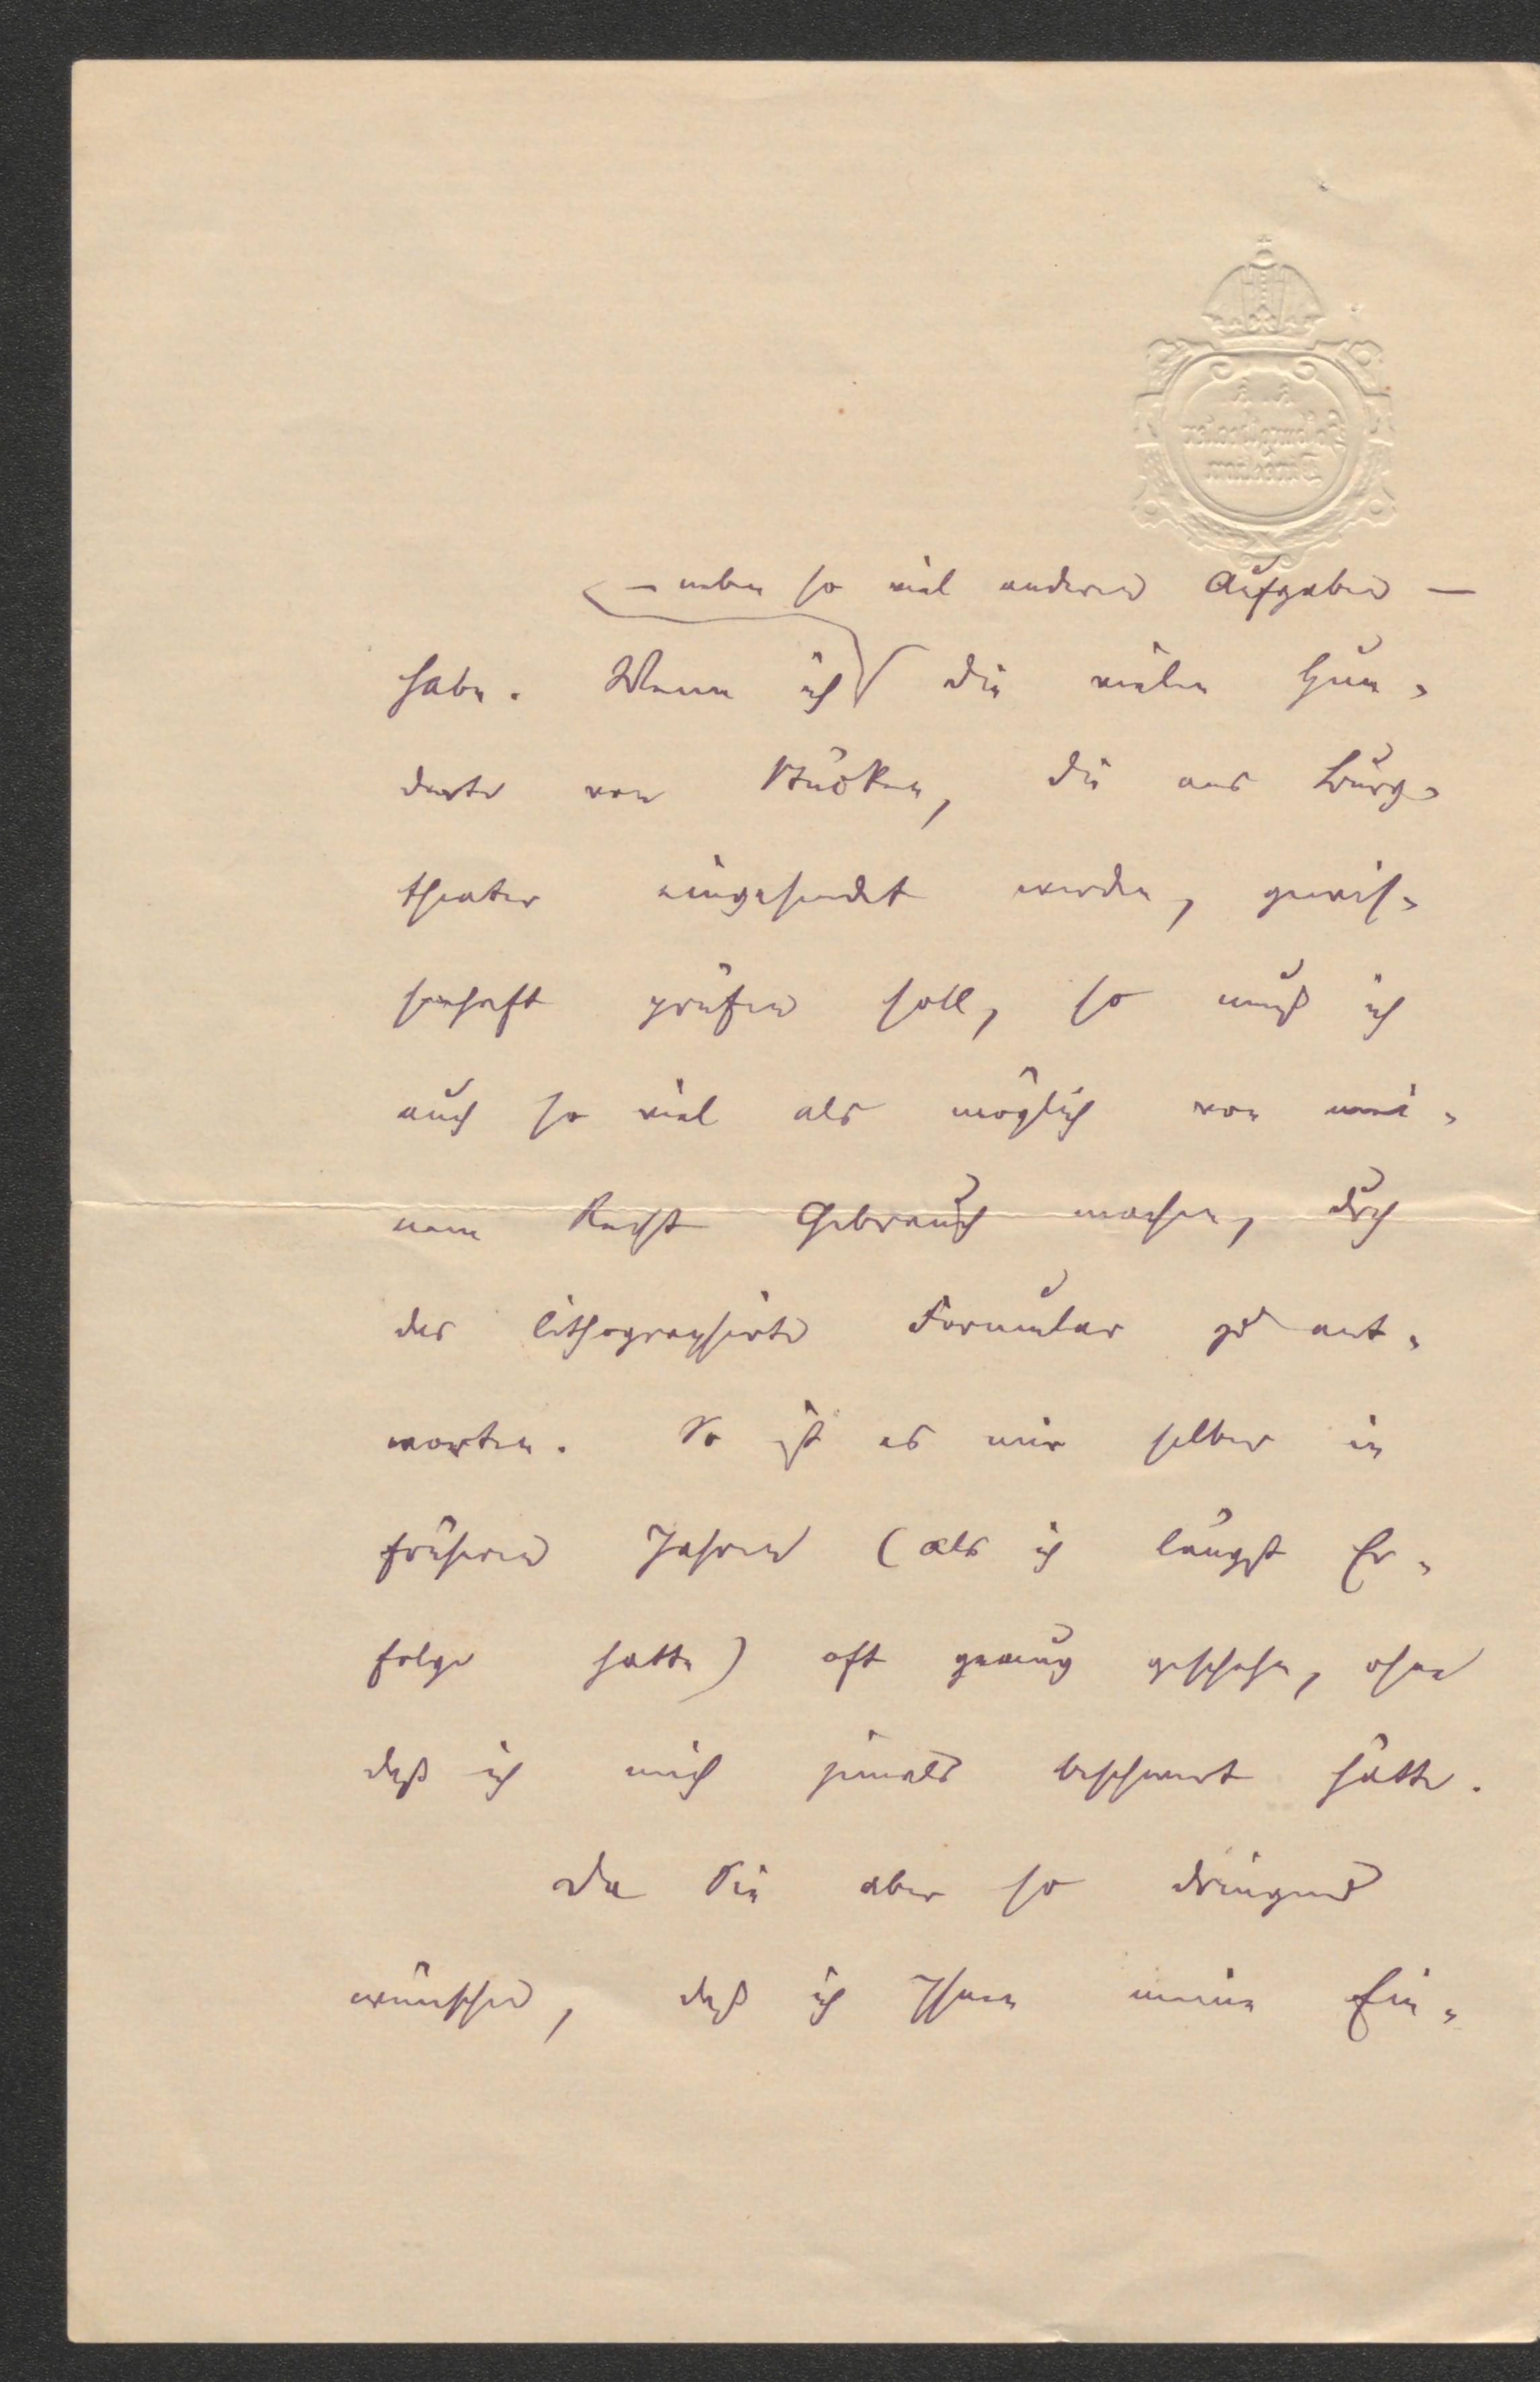 K. K.
Hofburgtheater
Direction
— neben so viel anderen Aufgaben —
habe. Wenn ich die vielen Hun-
derte von Stücken, die ans Burg-
theater eingesendet werden, gewis-
senhaft prüfen soll, so muß ich
auch so viel als möglich von mei-
nem Recht Gebrauch machen, durch
das lithographirte Formular zu ant-
worten. So ist es mir selber in
früheren Jahren (als ich längst Er-
folge hatte) oft genug geschehen, ohne
daß ich mich jemals beschwert hätte.
Da Sie aber so dringend
wünschen, daß ich Ihnen meine Ein-